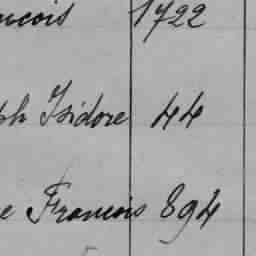 ncois 1722
ph Isidore 44
e Francois 894